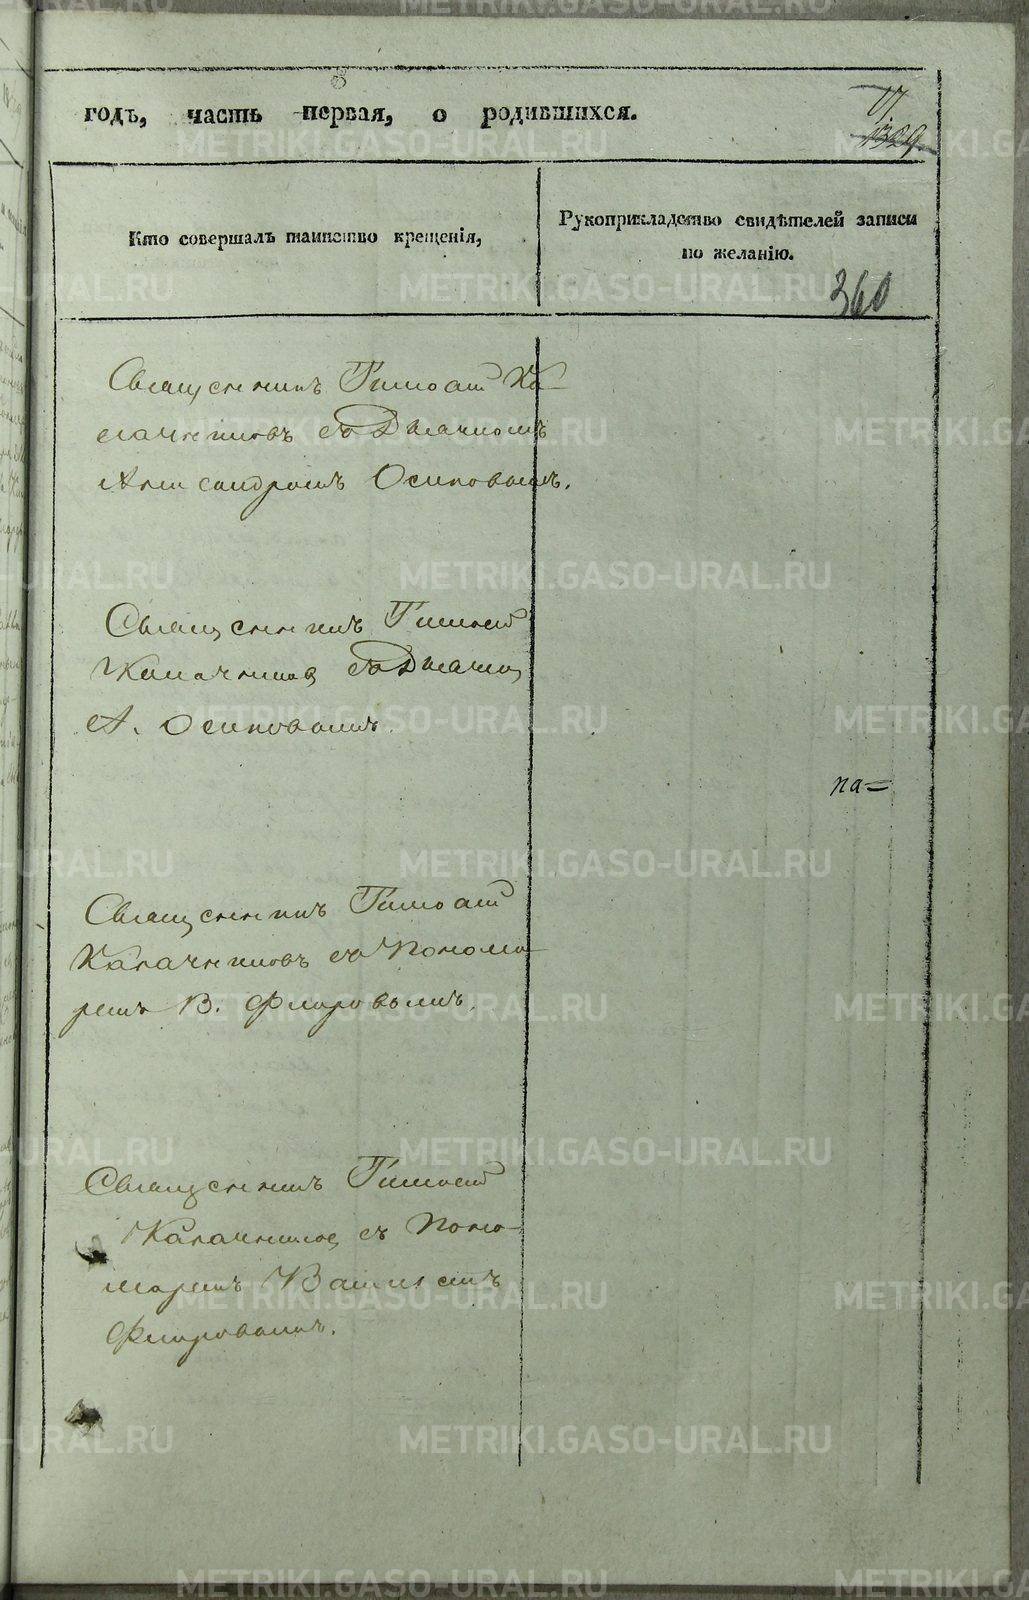 годъ, часть первая, о родившихся.
1329
Кто совершалъ таинство крещенія,
Рукоприкладство свидѣтелей записи
по желанію.
360
Священникъ Тимоѳей Ка-
лачниковъ съ Дьячкомъ
Александромъ Осиповымъ.
Священникъ Тимоѳей
Калачников съ Дьячком
А. Осиповымъ.
па=
Священникъ Тимоѳей
Калачниковъ съ Понома-
ремъ В. Флоровымъ.
Священникъ Тимоѳей
Калачников съ Поно-
маремъ Василіемъ
Флоровымъ.
METRIKI.GASO-URAL.RU